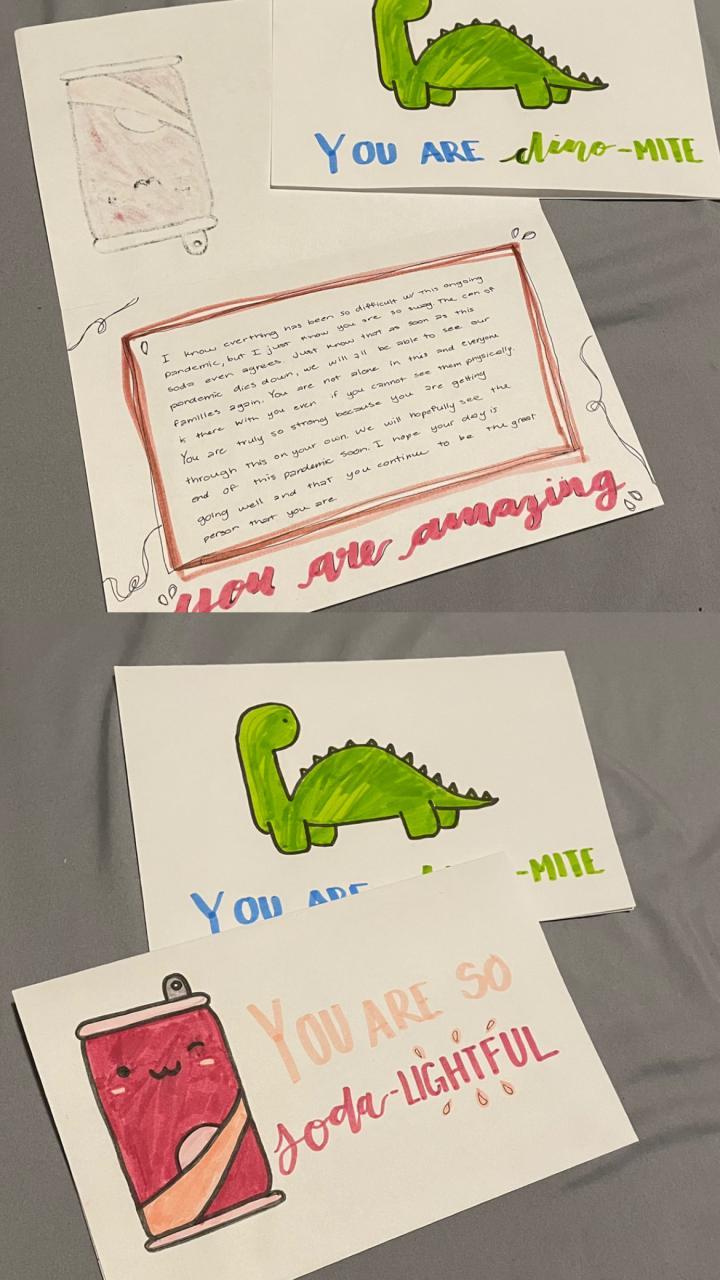 YOU ARE dino-MITE
I know everthing has been so difficult w/ this ongoing
pandemic, but I just know you are so swag. The can of
soda even agrees. Just know that as soon as this
pandemic dies down, we will all be able to see our
families again. You are not alone in this and everyone
is there with you even if you cannot see them physically.
You are truly so strong because you are getting
through this on your own. We will hopefully see the
end of this pandemic soon. I hope your day is
going well and that you continue to be the great
person that you are
you are amazing
YOU ARE -MITE
YOU ARE SO
soda-LIGHTFUL